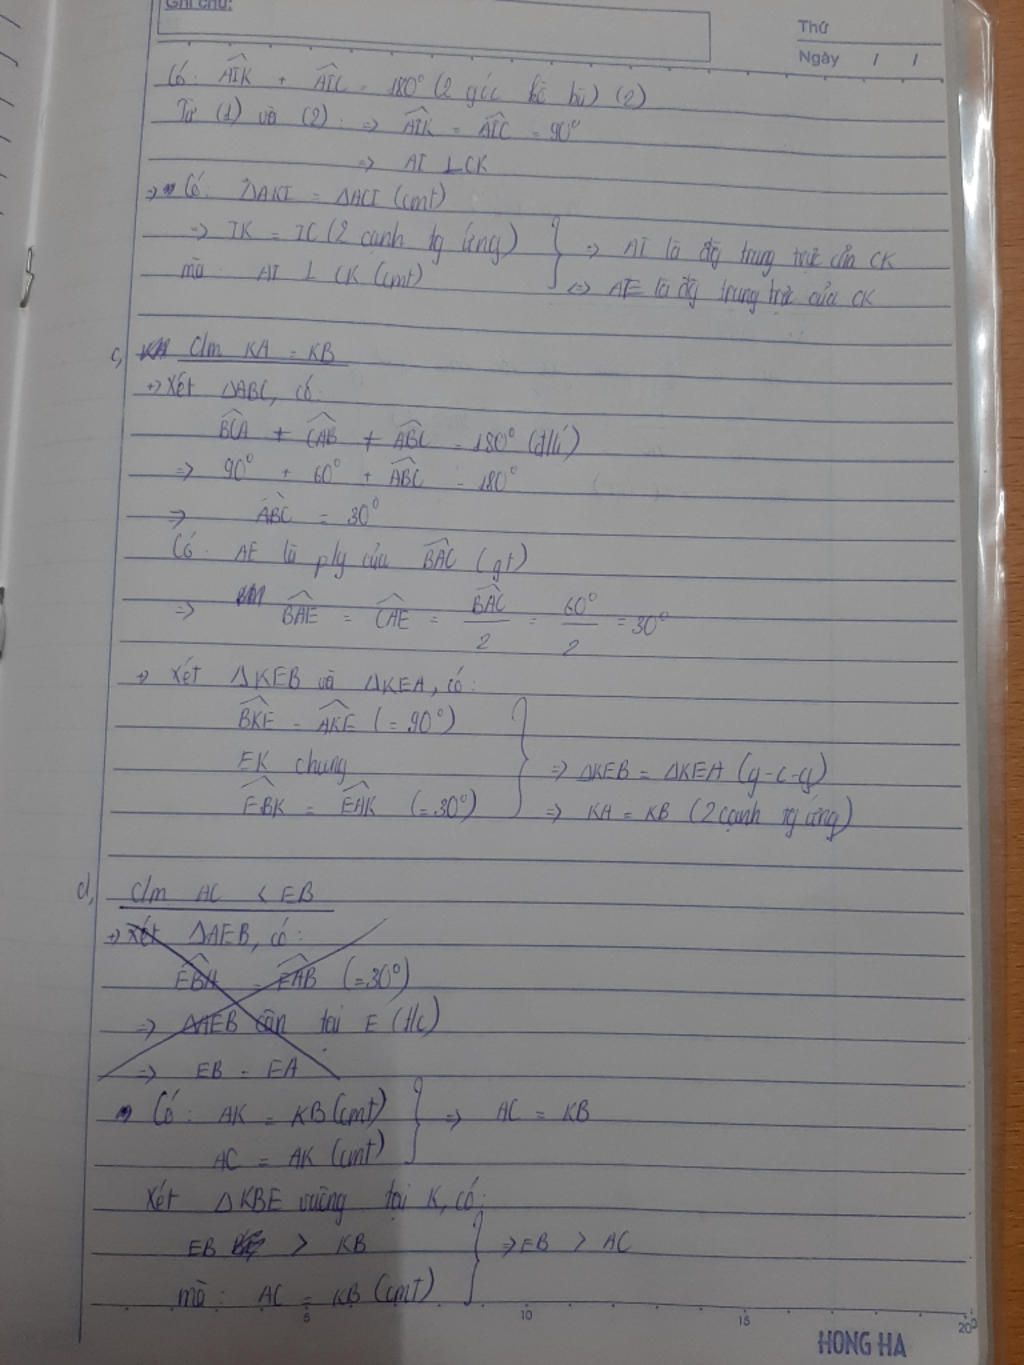 Ghi chú:
Thứ
Ngày / /
Có: AIK + AIC = 180° (2 góc kề bù) (2)
Từ (1) và (2): => AIK = AIC = 90°
=> AI ⊥ CK
Có: ΔAKI = ΔACI (cmt)
=> IK = IC (2 cạnh tg ứng)
mà: AI ⊥ CK (cmt)
=> AI là đg trung trực của CK
=> AE là đg trung trực của CK
c, C/m KA = KB
Xét ΔABC, có:
BCA + CAB + ABC = 180° (đ/lí)
=> 90° + 60° + ABC = 180°
=> ABC = 30°
Có: AE là p/g của BAC (gt)
=> BAE = CAE = BAC/2 = 60°/2 = 30°
Xét ΔKEB và ΔKEA, có:
BKE = AKE (= 90°)
EK chung
EBK = EAK (= 30°)
=> ΔKEB = ΔKEA (g-c-g)
=> KA = KB (2 cạnh tg ứng)
d, C/m AC < EB
Xét ΔAEB, có:
EBA = EAB (= 30°)
=> ΔAEB cân tại E (t/c)
=> EB = EA
Có: AK = KB (cmt)
AC = AK (cmt)
=> AC = KB
Xét ΔKBE vuông tại K, có:
EB > KB
mà: AC = KB (cmt)
=> EB > AC
5 10 15 20
HONG HA